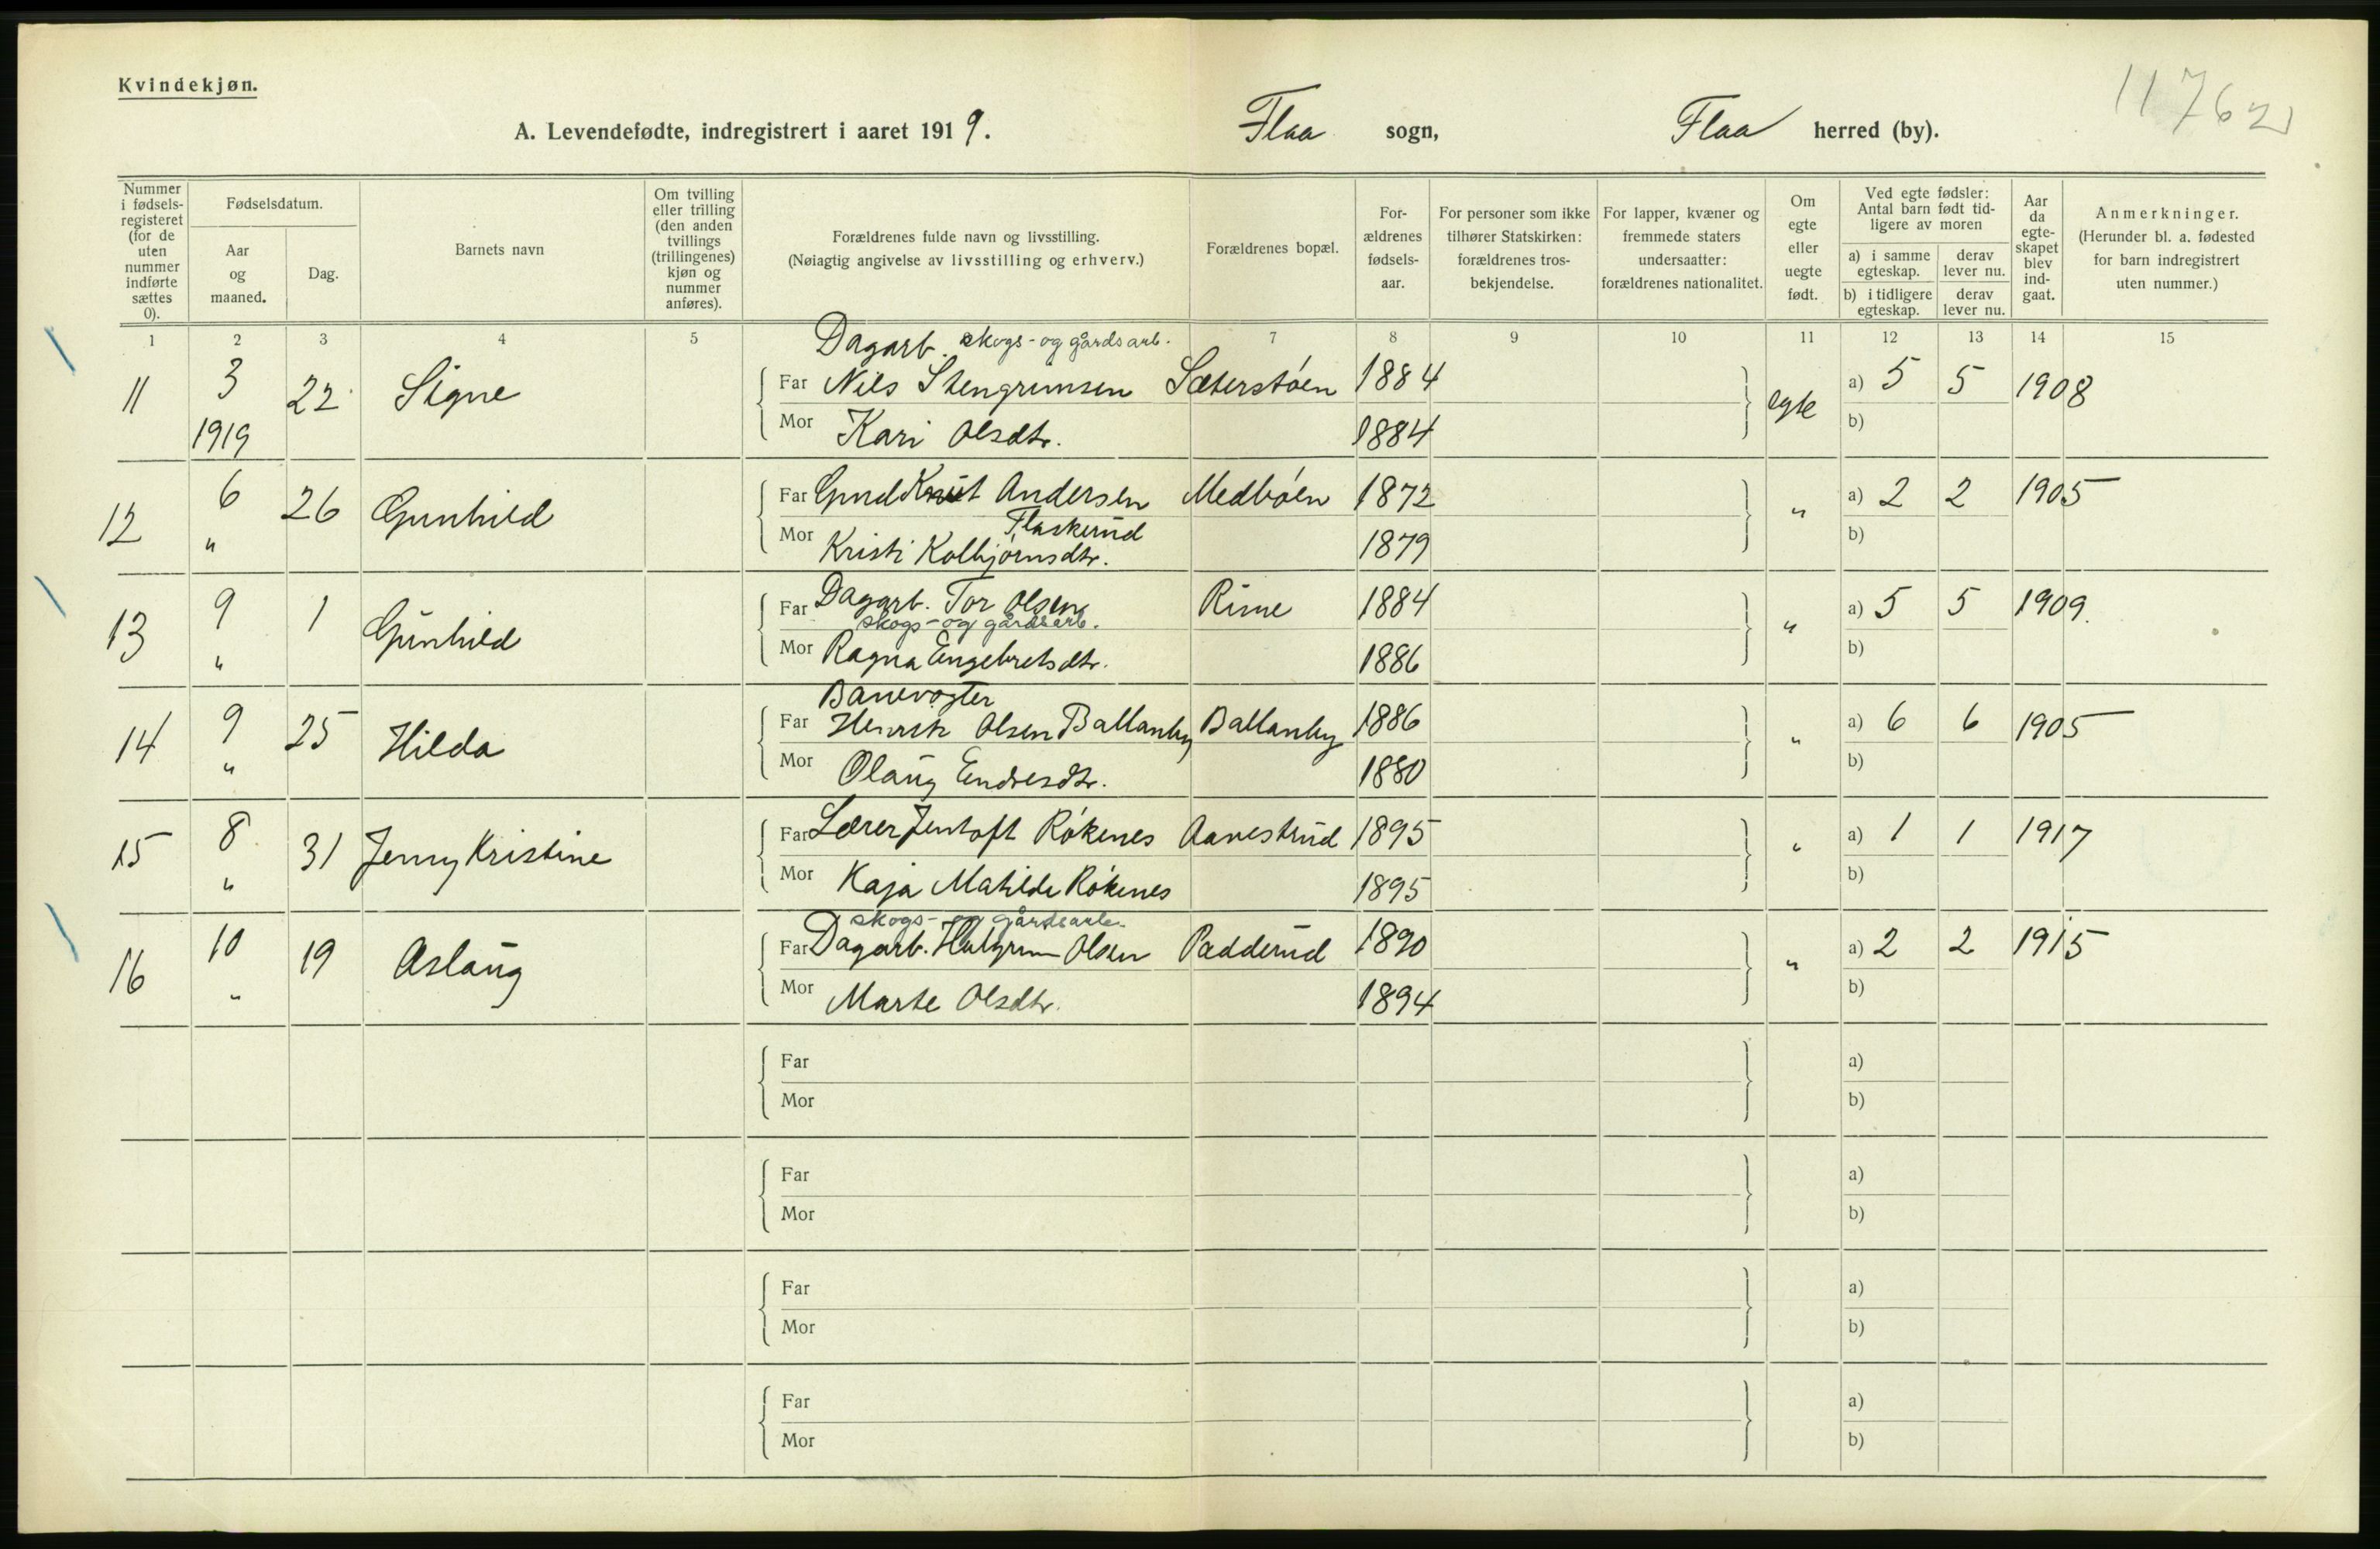 Kvindekjøn.
11762
A. Levendefødte, indregistrert i aaret 1919. Flaa sogn, Flaa herred (by).
Nummer i fødsels-registeret (for de uten nummer indførte sættes 0).
Fødselsdatum.
Aar og maaned.
Dag.
Barnets navn
Om tvilling eller trilling (den anden tvillings (trillingenes) kjøn og nummer anføres).
Forældrenes fulde navn og livsstilling.
(Nøiagtig angivelse av livsstilling og erhverv.)
Forældrenes bopæl.
For-ældrenes fødsels-aar.
For personer som ikke tilhører Statskirken: forældrenes tros-bekjendelse.
For lapper, kvæner og fremmede staters undersaatter: forældrenes nationalitet.
Om egte eller uegte født.
Ved egte fødsler: Antal barn født tid-ligere av moren
a) i samme egteskap.
derav lever nu.
b) i tidligere egteskap.
derav lever nu.
Aar da egte-skapet blev ind-gaat.
Anmerkninger.
(Herunder bl. a. fødested for barn indregistrert uten nummer.)
1 2 3 4 5 7 8 9 10 11 12 13 14 15
Dagarb. skogs- og gårdsarb.
11 3 22 Signe Far Nils Stengrimsen Sæterstøen 1884 egte a) 5 5 1908
1919 Mor Kari Olsdtr. 1884 b)
12 6 26 Gunhild Far Knut Andersen Medbøen 1872 " a) 2 2 1905
Flaskerud
" Mor Kristi Kolbjørnsdtr. 1879 b)
13 9 1 Gunhild Far Dagarb. Tor Olsen Rime 1884 " a) 5 5 1909.
skogs- og gårdsarb.
" Mor Ragna Engebretsdtr. 1886 b)
Banevogter
14 9 25 Hilda Far Henrik Olsen Ballanby Ballanby 1886 " a) 6 6 1905
" Mor Olaug Endresdtr. 1880 b)
15 8 31 Jenny Kristine Far Lærer Jentoft Røkenes Aavestrud 1895 " a) 1 1 1917
" Mor Kaja Matilde Røkenes 1895 b)
skogs- og gårdsarb.
16 10 19 Aslaug Far Dagarb. Olsen Padderud 1890 " a) 2 2 1915
" Mor Marte Olsdtr. 1894 b)
Far a)
Mor b)
Far a)
Mor b)
Far a)
Mor b)
Far a)
Mor b)